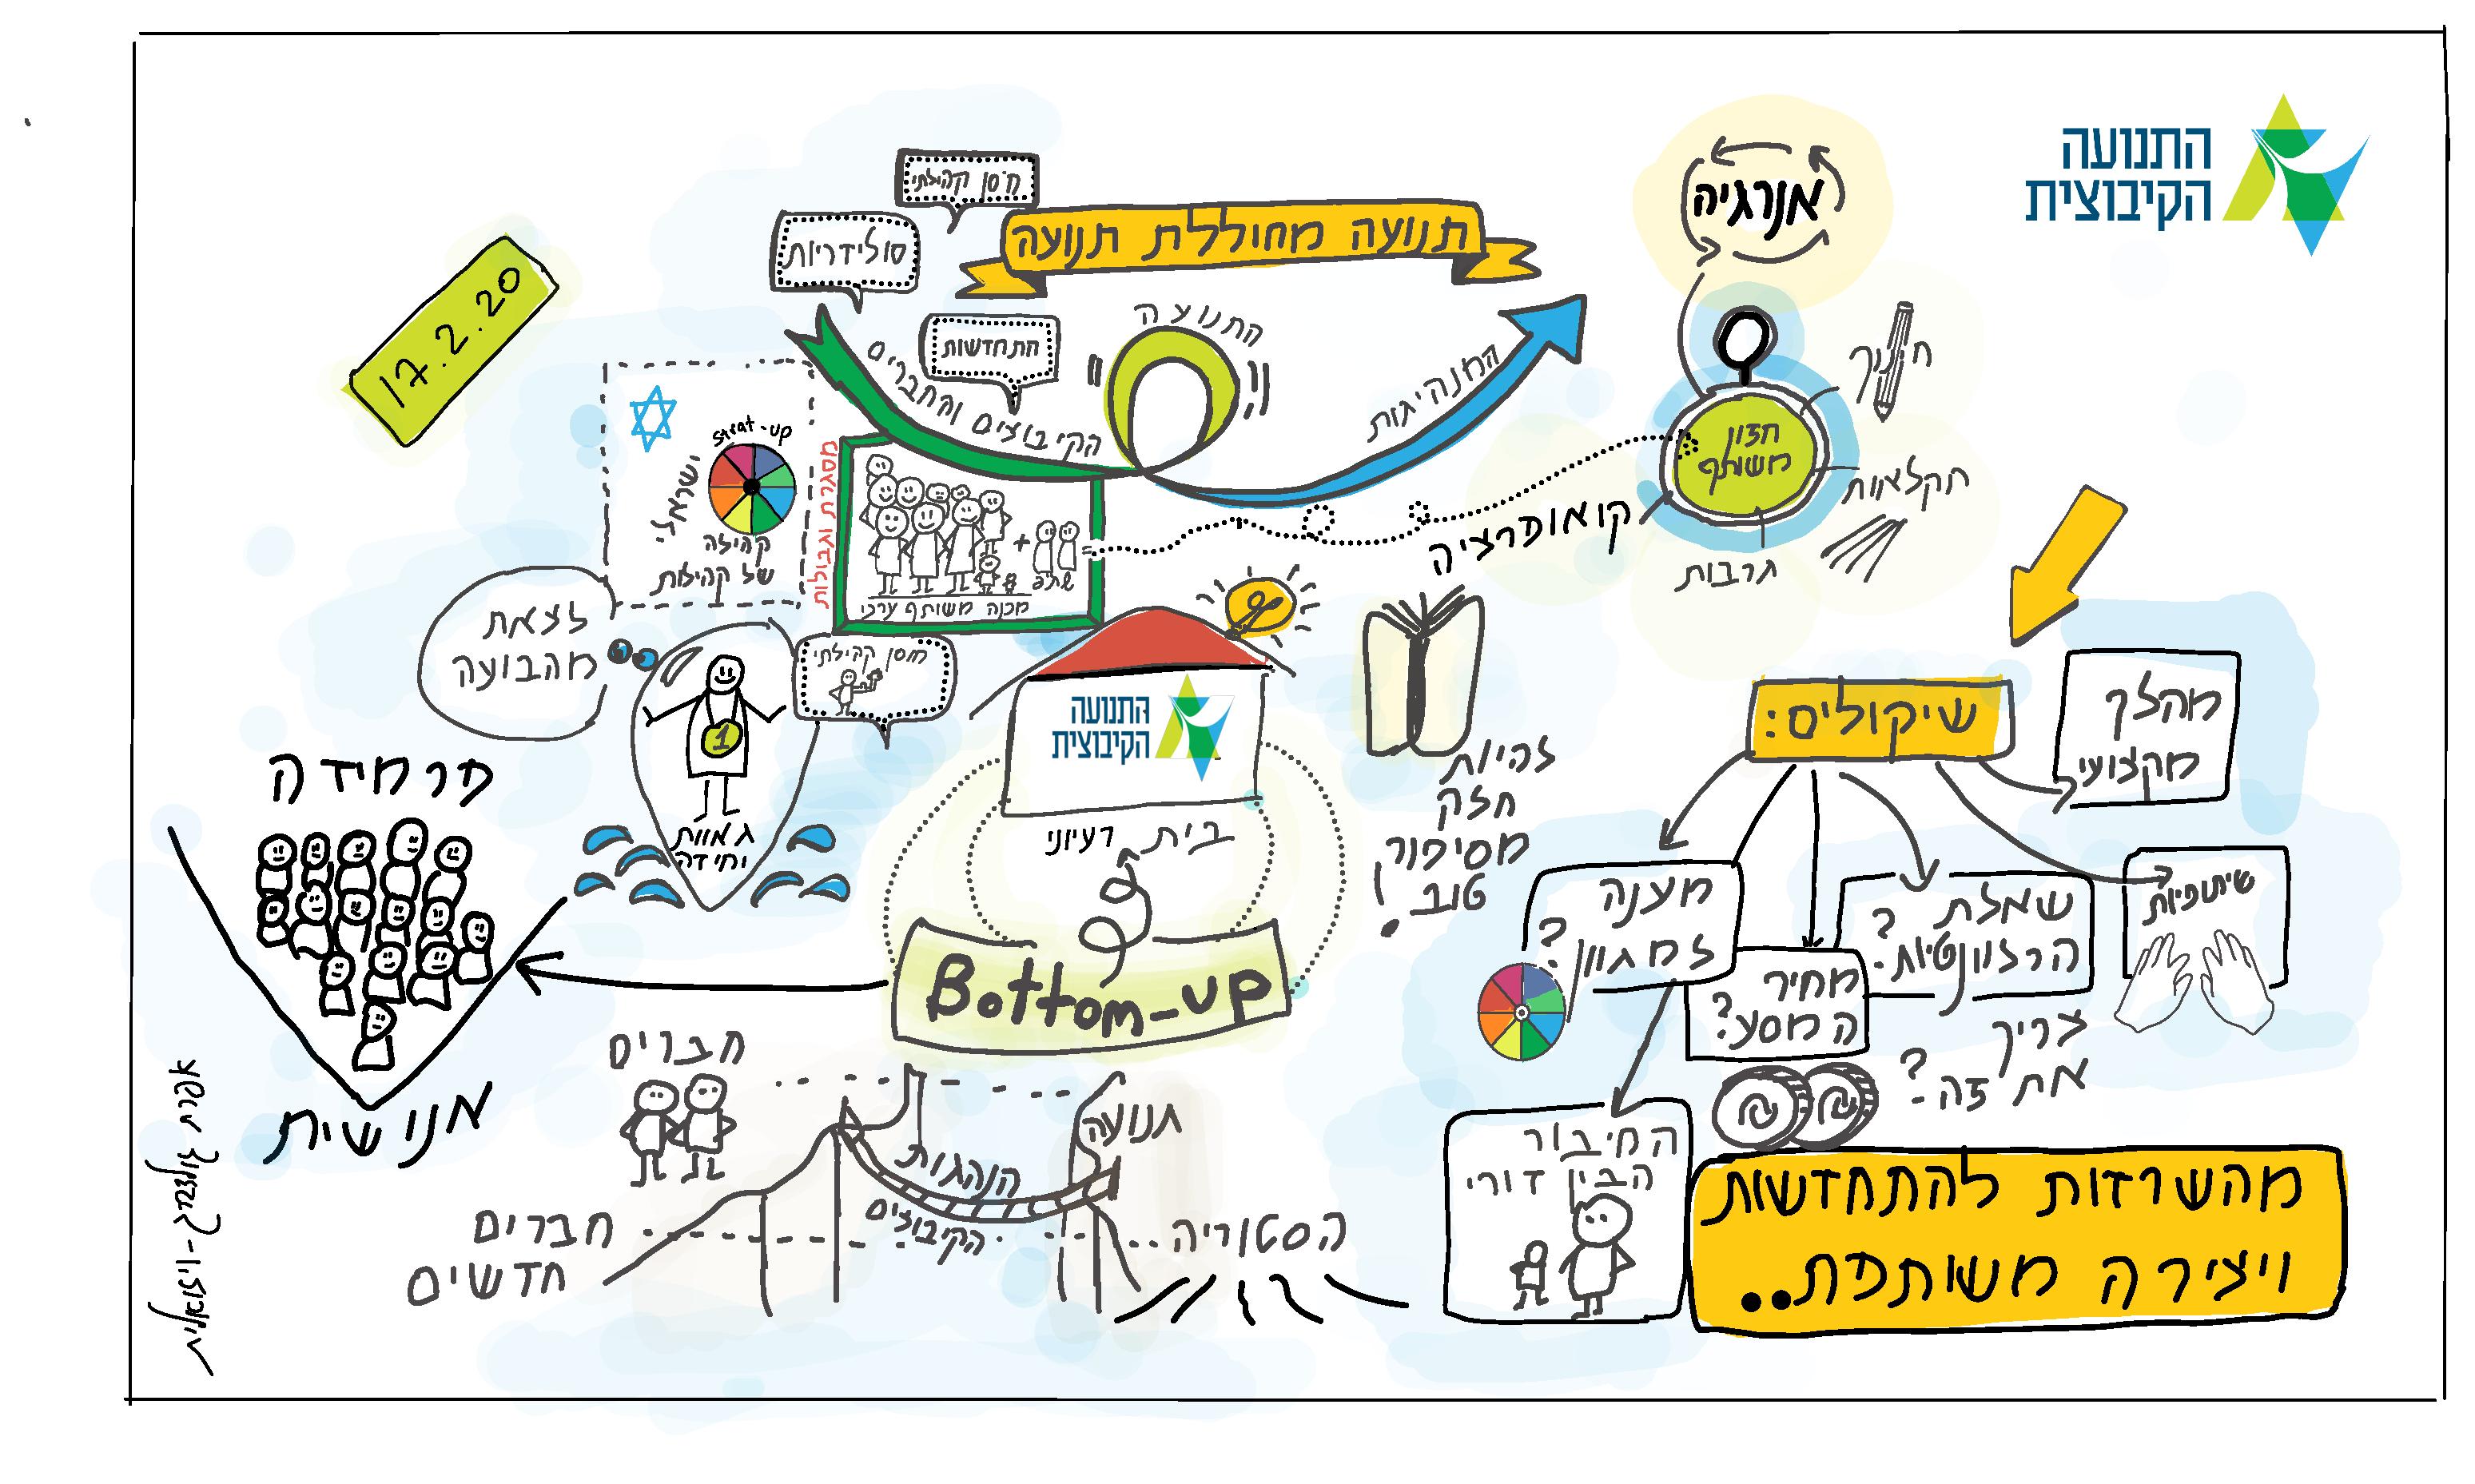 התנועה
הקיבוצית
אנרגיה
תנועה מחוללת תנועה
חסן קהילתי
סולידריות
התחדשות
17.2.20
התנועה
הקיבוצים והחברים
המנהיגות
חינוך
חזון
משותף
חקלאות
תרבות
קואופרציה
strat-up
ישראלי
קהילה
של קהילות
מסגרת וגבולות
+
=
מכנה משותף ערכי
לצאת
מהבועה
חוסן קהילתי
1
גאוות
יחידה
התנועה
הקיבוצית
בית רעיוני
להיות
חזק
מסיפור
טוב!
שיקולים:
מהלך
מקצועי
מענה
למגוון?
מחיר
המסע?
שאלת
הרלוונטיות?
שיתופיות
צריך
את זה?
החיבור
הבין דורי
מהשרדות להתחדשות
ויצירה משותפת..
Bottom-up
פרמידה
אנושית
חברים
תנועה
הנהגות
הקיבוצים
חברים
חדשים
הסטוריה
אפרת גולדברג - ויזואלית